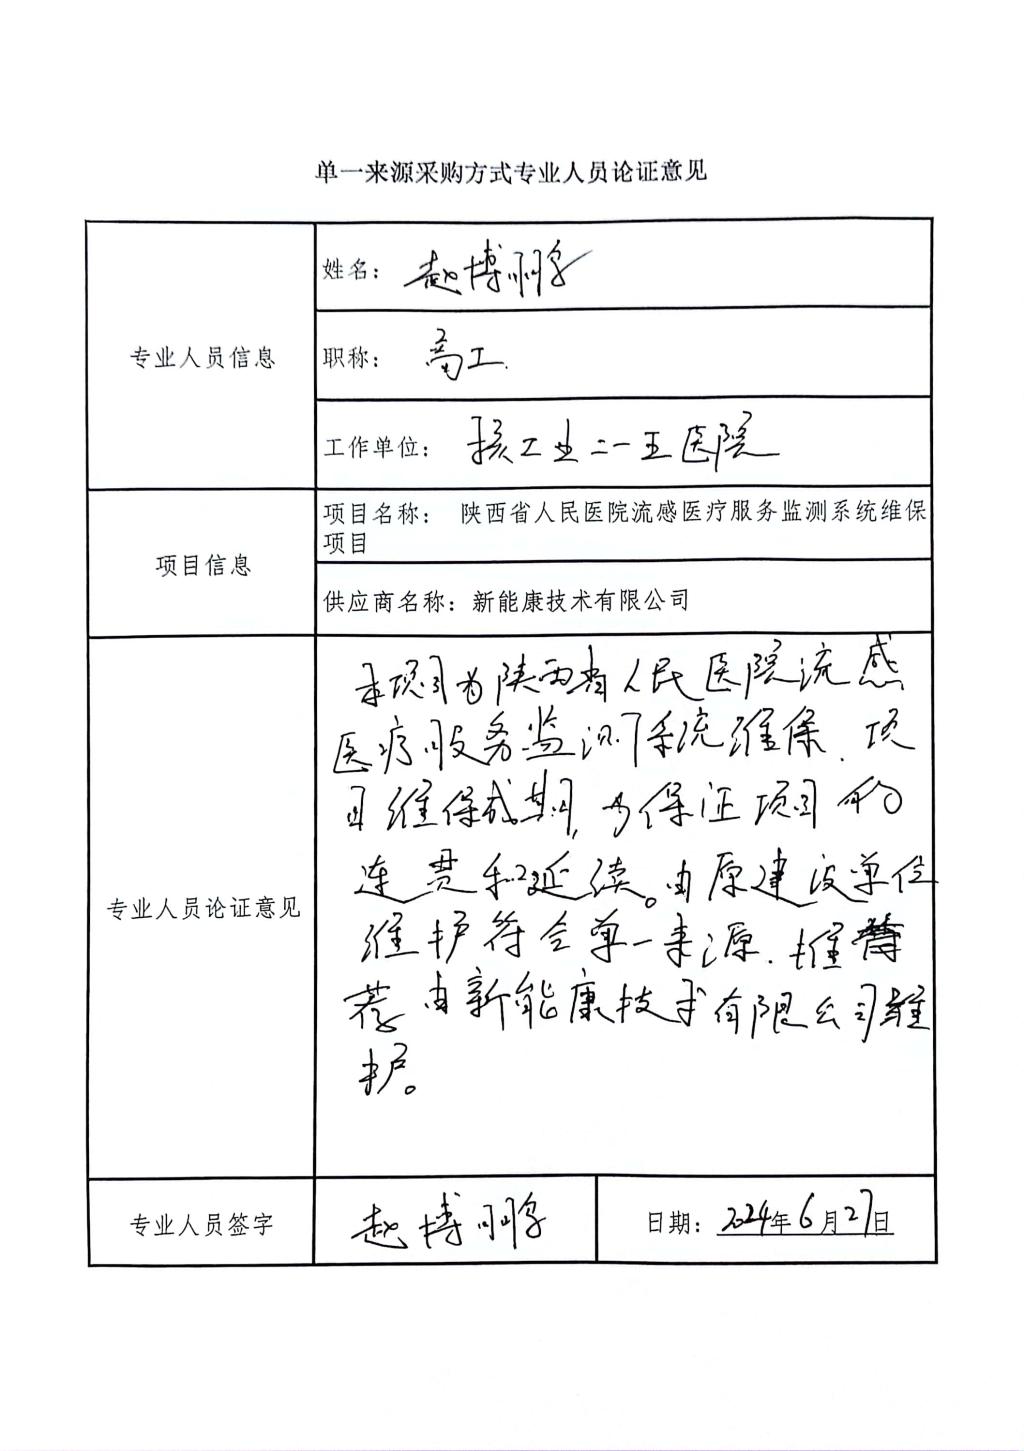 单一来源采购方式专业人员论证意见
专业人员信息
姓名：赵博鹏
职称：高工.
工作单位：核工业二一五医院
项目信息
项目名称：陕西省人民医院流感医疗服务监测系统维保
项目
供应商名称：新能康技术有限公司
专业人员论证意见
本项目为陕西省人民医院流感
医疗服务监测系统维保.项
目维保成期,为保证项目的
连贯和延续。由原建设单位
维护符合单一来源.推
荐由新能康技术有限公司维
护。
专业人员签字
赵博鹏
日期：2024年6月27日